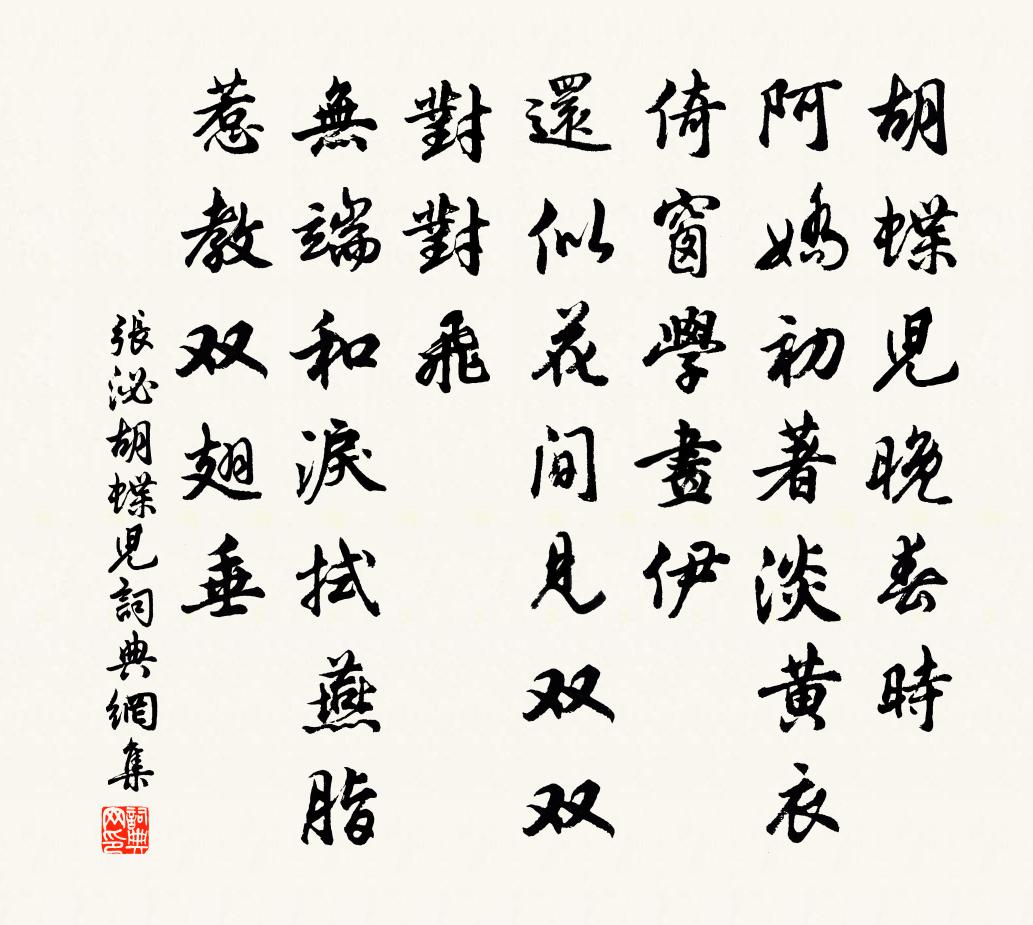 胡蝶児晚春時
阿嬌初著淡黃衣
倚窗學畫伊
還似花间見双双
對對飛
無端和淚拭燕脂
惹教双翅垂
張泌胡蝶児詞典網集
詞典网印